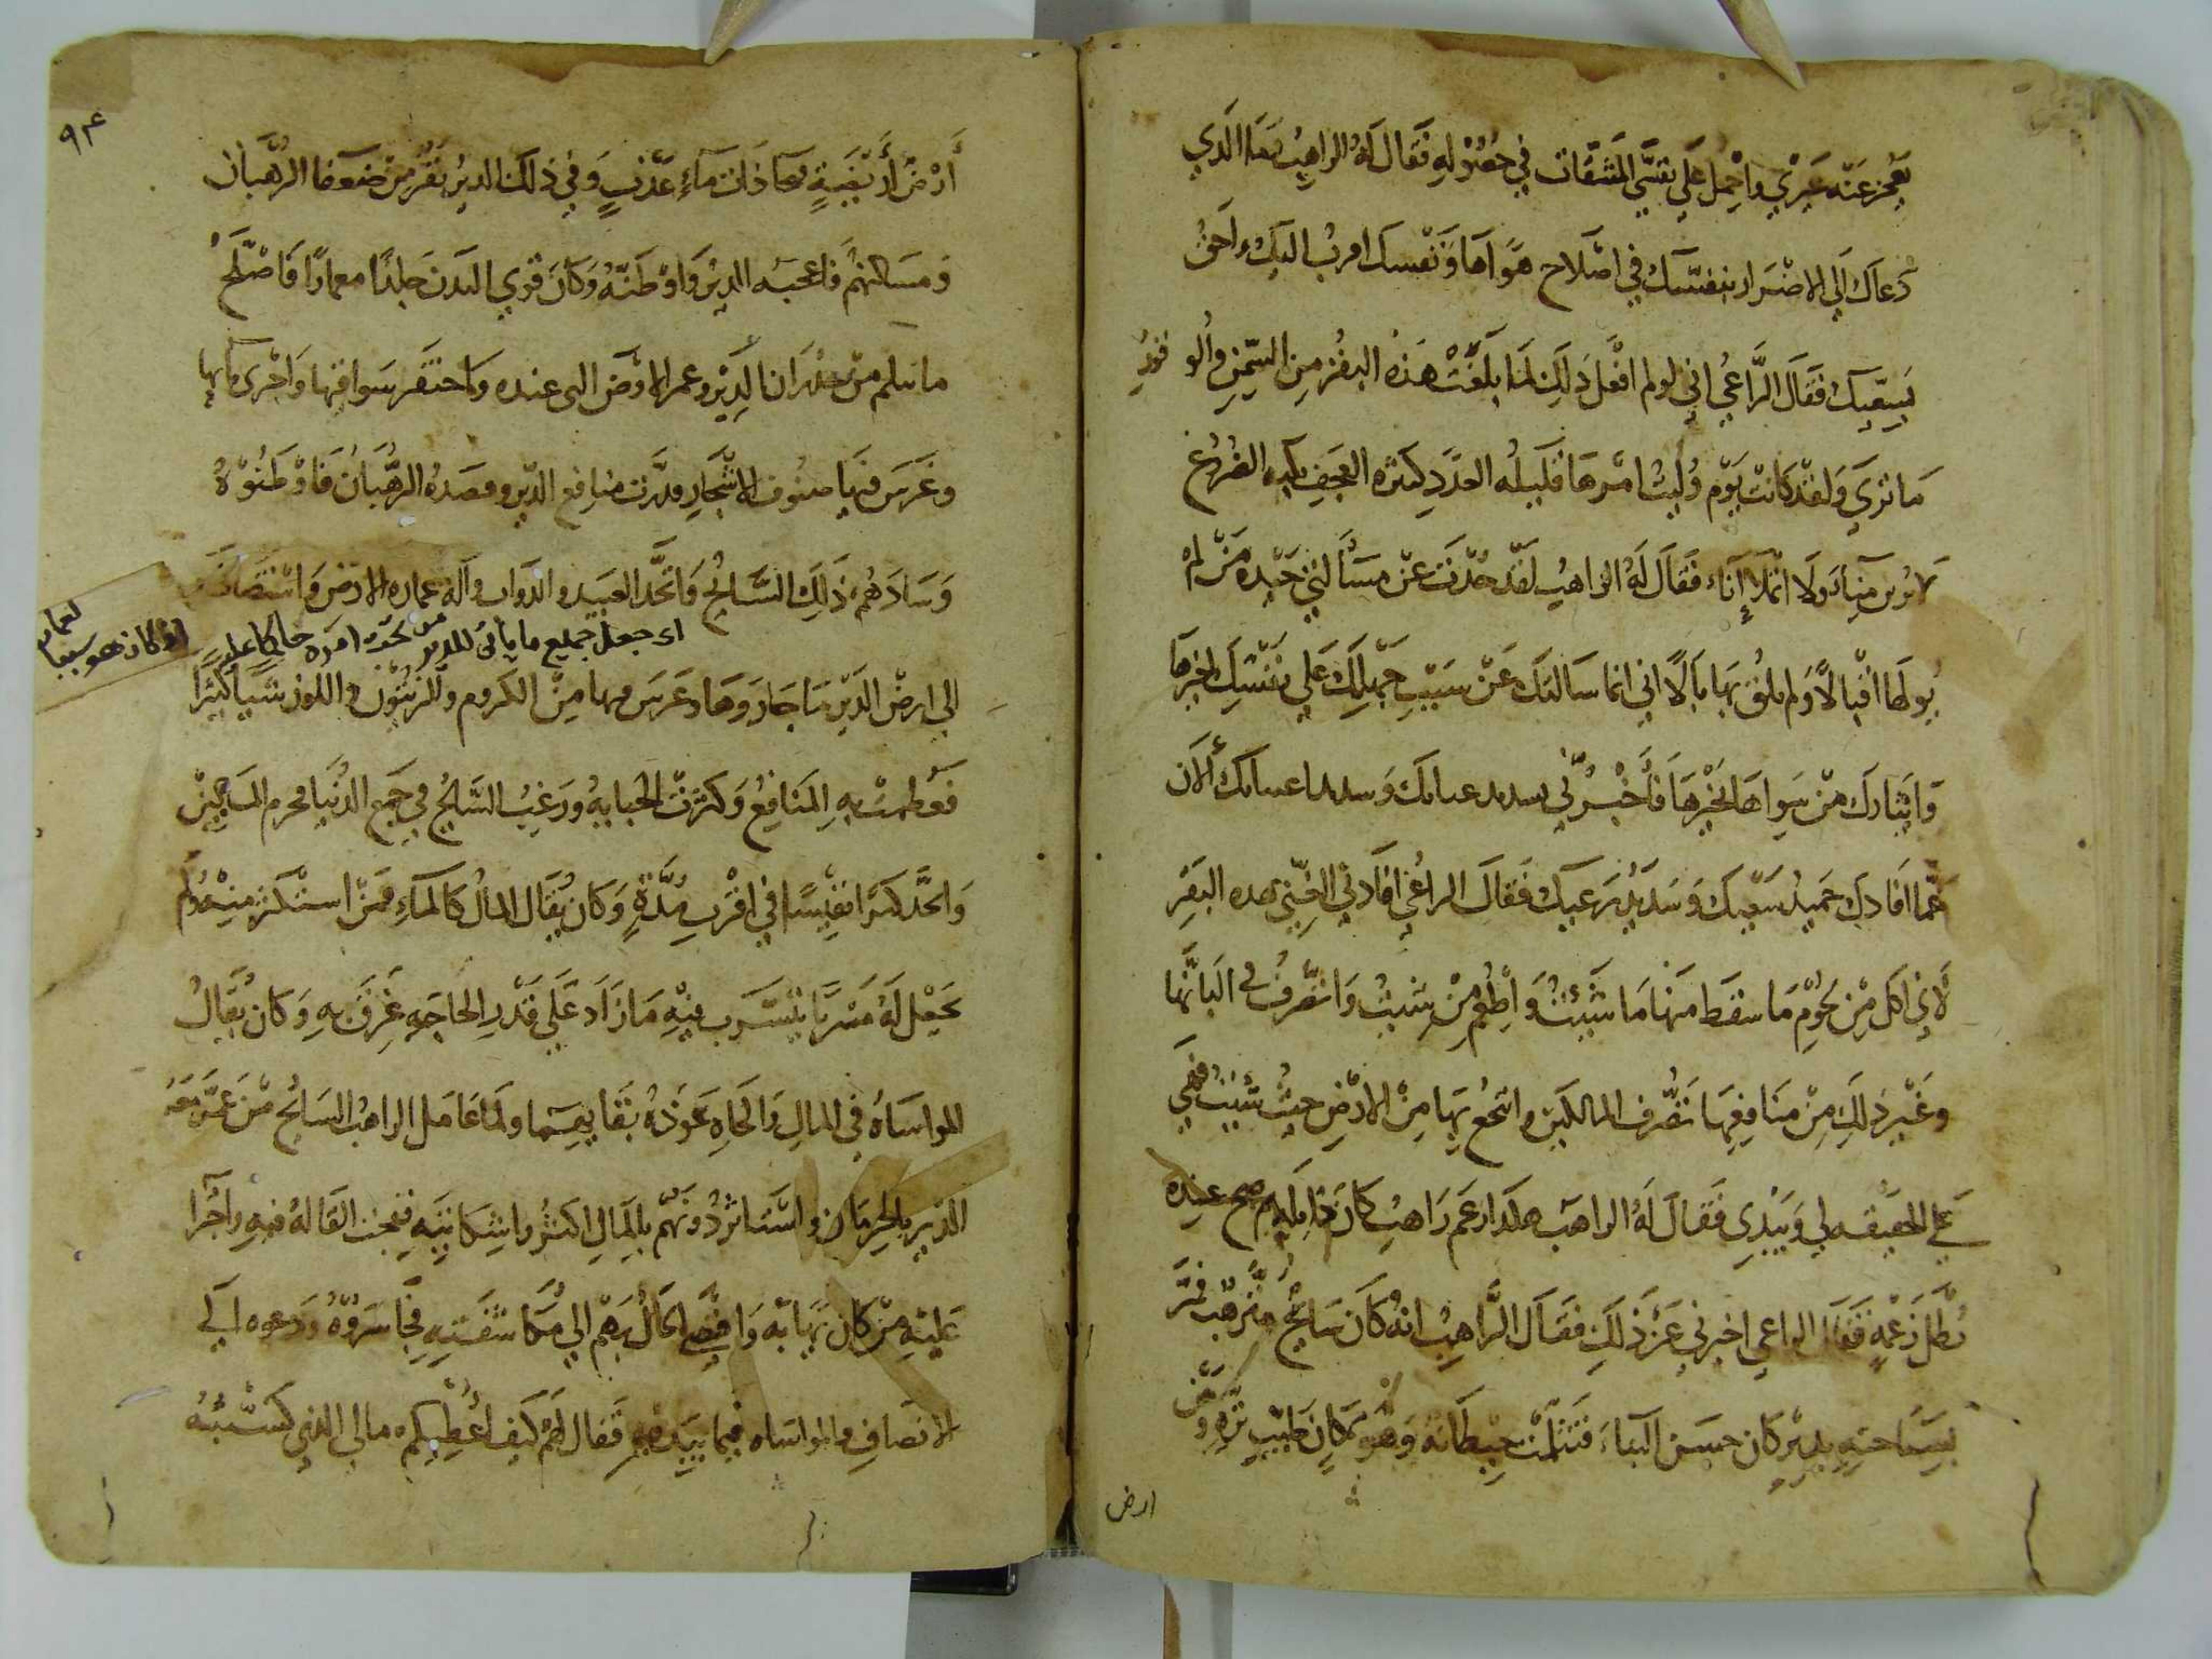 يعجز عنه غيري واحمل على نفسي المشقات في حصوله فقال له الراهب فما الذي
دعاك الى الاضرار بنفسك في اصلاح هواها ونفسك اقرب اليك واحق
بسعيك فقال الراعي اني لو لم افعل ذلك لما بلغت هذه البقر من السمن والوفور
ما ترى ولقد كانت يوم وليت امرها قليله العدد كثيره العجف بكيه الضروع
فقال له الراهب لقد حدت عن مسألتي حيده من لم
يولها اقبالا ولم يلق بها بالا اني انما سالتك عن سبب حملك على نفسك لخيرها
وايثارك من سواها بخيرها فأخبرني الآن
عما افادك حميد سعيك وسديد رعيك فقال الراعي افادني الغنى هذه البقر
لاني اكل من لحوم ما سقط منها ما شئت واطعم من شئت واتصرف في البانها
وغير ذلك من منافعها تصرف المالكين وانتجع بها من الارض حيث شئت فهي
على الحقيقه لي وبيدي فقال له الراهب هكذا زعم راهب كان فلم صح عنده
بطل زعمه فقال الراعي اخبرني عن ذلك فقال الراهب انه كان سائح مترهب فمر
بسياحته بدير كان حسن البناء فتثلمت حيطانه وهو بمكان طيب نزه ومن
ارض
٩٤
أرض أريضة بها ذات ماء عذب وفي ذلك الدير نفر من ضعفا الرهبان
ومساكنهم فاعجبه الدير واوطنه وكان قوي البدن جلدا معمارا فاصلح
ما تثلم من جدران الدير وعمر الارض التي عنده واحتفر سواقيها واجرى مآءها
وغرس فيها صنوف الاشجار فدرت منافع الدير وقصده الرهبان فاوطنوه
وسادهم ذلك السائح فاتخذ العبيد والدواب وآلة عماره الارض واستضاف
اى جعل جميع ما يأتى للدير من تحت امره حاكما عليه
اذ كان هو سببا
الى ارض الدير ما جاورها وغرس فيها من الكروم والزيتون واللوز شيا كثيرا
فعظمت به المنافع وكثرت الجبايه ورغب السائح في جمع الدنيا فحرم المساكين
واتخذ كنزا نفيسا في اقرب مدة وكان يقال المال كالماء فمن استكثر منه ولم
يجعل له مسربا يتسرب فيه ما زاد على قدر الحاجه غرق به وكان يقال
المواساة في المال والجاه عوذة بقايهما ولما عامل الراهب السائح من عمر معه
الدير بالحرمان واستاثر دونهم بالمال اكثروا شكايته فيجت القالة فيه واجترا
عليه من كان يهابه وافضى الحال بهم الى مكاشفته فجاسروه ودعوه الى
الانصاف والمواساه فيما بيده فقال لهم كيف أعطيكم مالي الذي كسبته